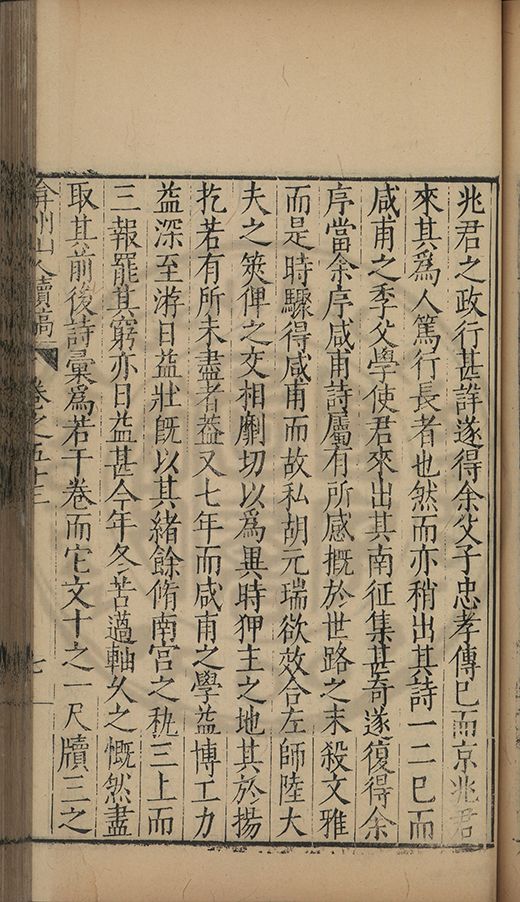 兆君之政行甚詳遂得余父子忠孝傳已而京兆君
來其爲人篤行長者也然而亦稍出其詩一二已而
咸甫之季父學使君來出其南征集甚奇遂復得余
序當余序咸甫詩屬有所感概於世路之末殺文雅
而是時驟得咸甫而故私胡元瑞欲效合左師陸大
夫之筴俾之交相劘切以爲異時狎主之地其於揚
扢若有所未盡者葢又七年而咸甫之學益博工力
益深至游日益壯旣以其緒餘脩南宮之秇三上而
三報罷其窮亦日益甚今年冬苦邁軸久之慨然盡
取其前後詩彚爲若干卷而它文十之一尺牘三之
弇州山人續稿 卷之五十三 七